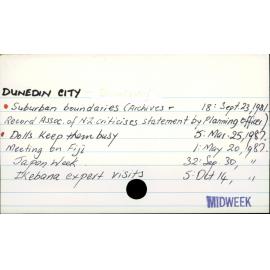 DUNEDIN CITY
• Suburban boundaries (Archives + 18: Sept 23, 1981.
Record Assoc. of N.Z criticises statement by Planning officer)
• Dolls keep them busy 5: Mar. 25, 1987.
Meeting on Fiji 1: May 20, 1987.
Japan Week 32: Sep. 30, "
Ikebana expert visits 5: Oct 14, "
MIDWEEK